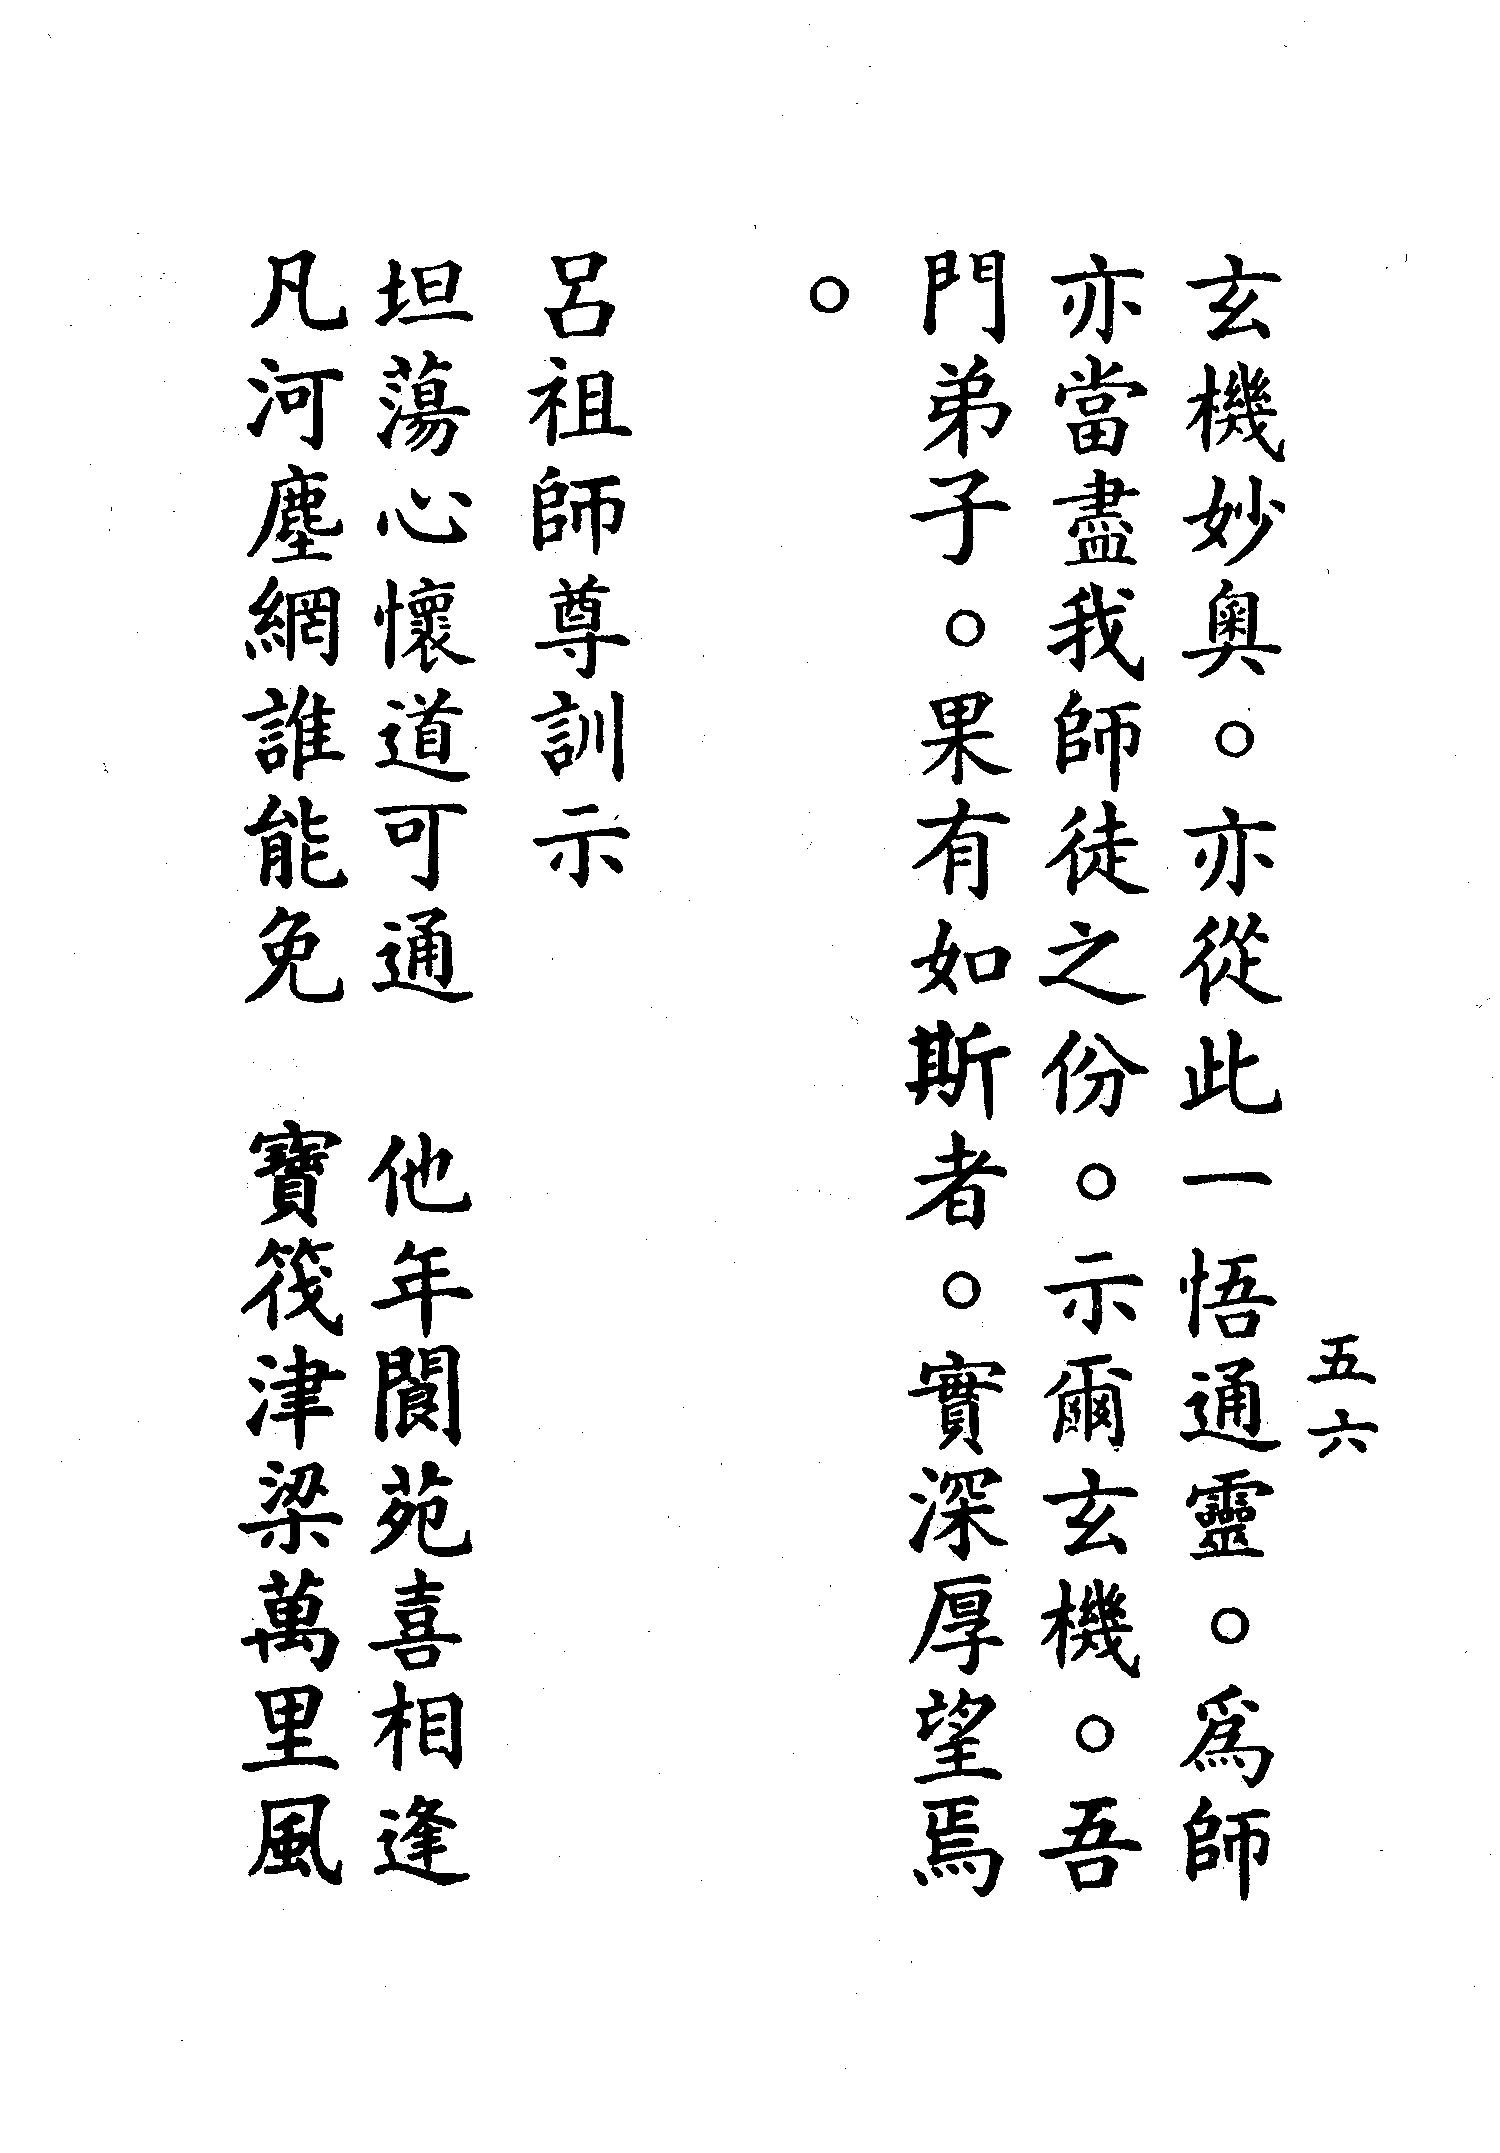 五六
玄機妙奧。亦從此一悟通靈。爲師
亦當盡我師徒之份。示爾玄機。吾
門弟子。果有如斯者。實深厚望焉
。
呂祖師尊訓示
坦蕩心懷道可通　他年閬苑喜相逢
凡河塵網誰能免　寶筏津梁萬里風